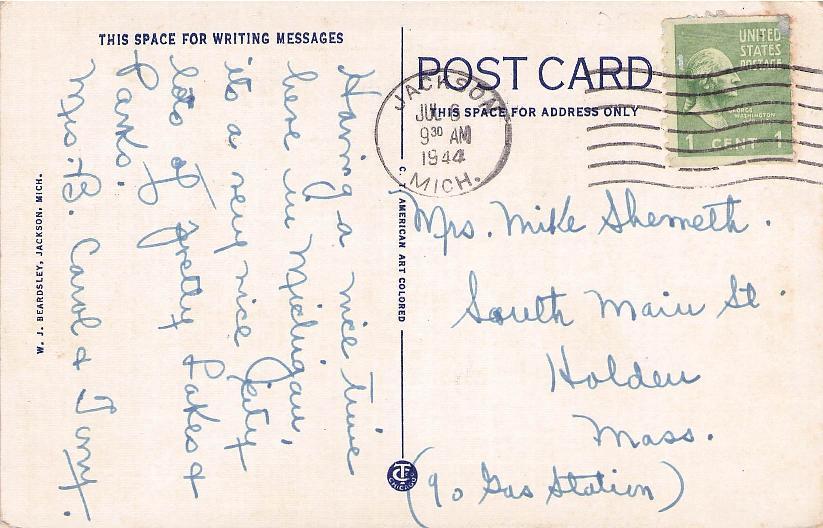 THIS SPACE FOR WRITING MESSAGES
Having a nice time
here in Michigan,
it's a very nice City
lots of pretty Lakes &
Parks.
Mrs. B. Carol & Tony.
W. J. BEARDSLEY, JACKSON, MICH.
C. T. AMERICAN ART COLORED
CHICAGO
POST CARD
THIS SPACE FOR ADDRESS ONLY
JACKSON
JUL 6
9 30 AM
1944
MICH.
UNITED
STATES
POSTAGE
GEORGE
WASHINGTON
1 CENT 1
Mrs. Mike Shemeth.
South Main St.
Holden
Mass.
(% Gas Station)